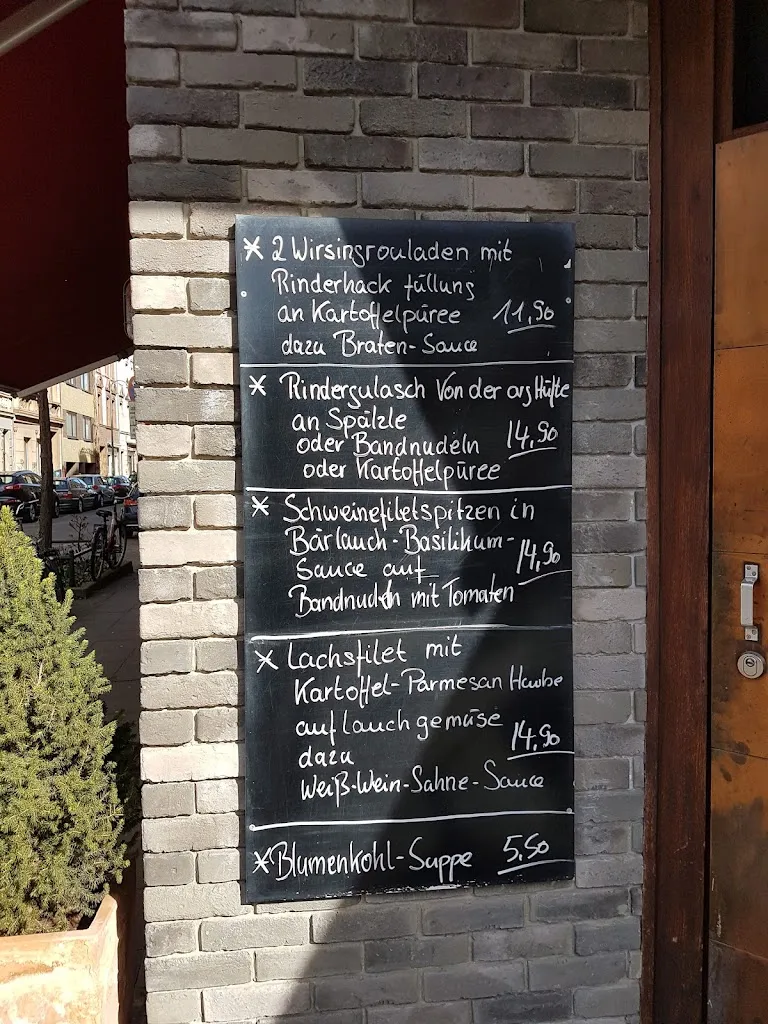 * 2 Wirsingrouladen mit
Rinderhack füllung
an Kartoffelpüree 11,90
dazu Braten-Sauce
* Rindergulasch Von der arg Hüfte
an Spätzle 14,90
oder Bandnudeln
oder Kartoffelpüree
* Schweinefiletspitzen in
Bärlauch-Basilikum-
Sauce auf 14,90
Bandnudeln mit Tomaten
* Lachsfilet mit
Kartoffel-Parmesan Haube
auf lauch gemüse
dazu 14,90
Weiß-Wein-Sahne-Sauce
* Blumenkohl-Suppe 5,50